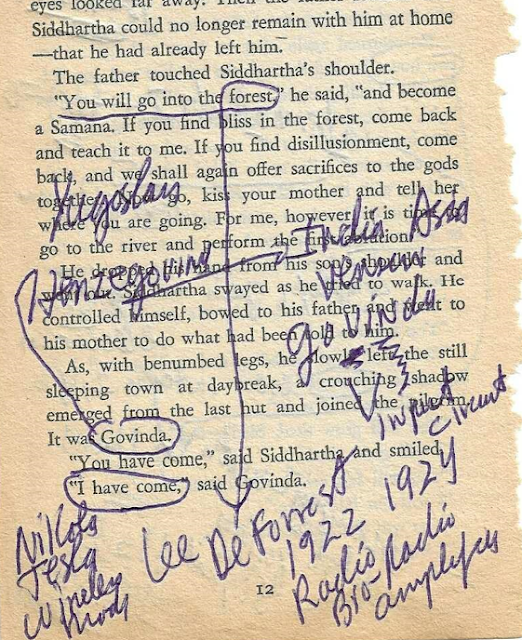 eyes looked far away. Then the father
Siddhartha could no longer remain with him at home
—that he had already left him.
The father touched Siddhartha's shoulder.
"You will go into the forest," he said, "and become
a Samana. If you find bliss in the forest, come back
and teach it to me. If you find disillusionment, come
back, and we shall again offer sacrifices to the gods
go, kiss your mother and tell her
where you are going. For me, however, it is time to
go to the river and perform the first ablution."
He his hand from his son's shoulder and
went out. Siddhartha swayed as he tried to walk. He
controlled himself, bowed to his father and went to
his mother to do what had been told to him.
As, with benumbed legs, he slowly left the still
sleeping town at daybreak, a crouching shadow
emerged from the last hut and joined the pilgrim.
It was Govinda.
"You have come," said Siddhartha and smiled.
"I have come," said Govinda.
12
Yugoslav
Herzegovina
India Asia
Govinda
Input
Circuit
Nikola
Tesla
Wireless
Lee DeForrest
1922 1924
Radio
Bio-Radio
amplifyer